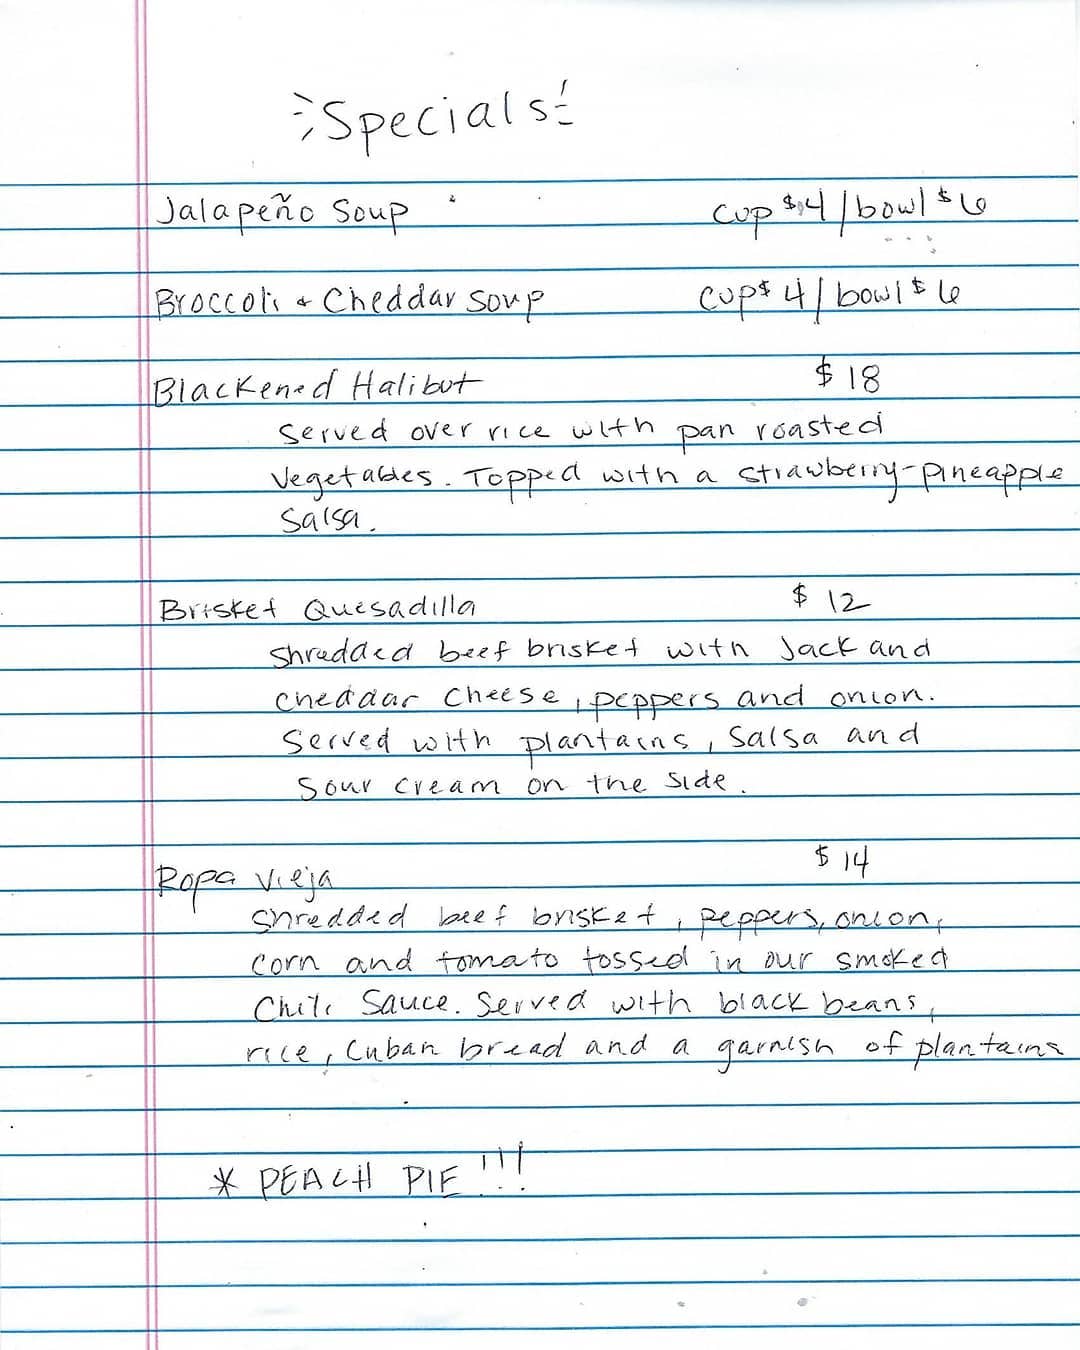 Specials
Jalapeño Soup cup $4/bowl $6
Broccoli & Cheddar Soup cup $4/bowl $6
Blackened Halibut $18
Served over rice with pan roasted
vegetables. Topped with a strawberry-pineapple
salsa.
Brisket Quesadilla $12
Shredded beef brisket with Jack and
cheddar cheese, peppers and onion.
Served with plantains, salsa and
sour cream on the side.
Ropa Vieja $14
Shredded beef brisket, peppers, onion,
corn and tomato tossed in our smoked
chili sauce. Served with black beans,
rice, Cuban bread and a garnish of plantains
* PEACH PIE!!!